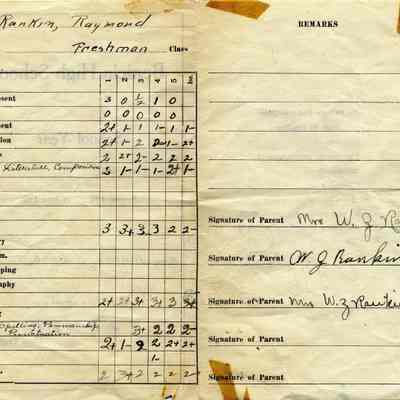 Rankin, Raymond
Freshman Class
1 2 3 4 5
esent 3 0 1/2 1 0
0 0 0 0 0
ent 2+ 1 1 1- 1 1-
tion 2+ 1- 2 1- 2+
2 2+ 2- 2 2 2
Composition 3 1- 1- 1- 2+ 1-
3 3+ 3 3 2 2-
y
m.
ping
aphy
2+ 2+ 3+ 3+ 3
Spelling, Penmanship
Punctuation 3+ 2 2 2-
2+ 1- 2 2 2+ 2+
1-
2 3+ 2 2 2 2
REMARKS
Signature of Parent Mrs W. J. R
Signature of Parent W. J. Rankin
Signature of Parent Mrs W. J. Rankin
Signature of Parent
Signature of Parent